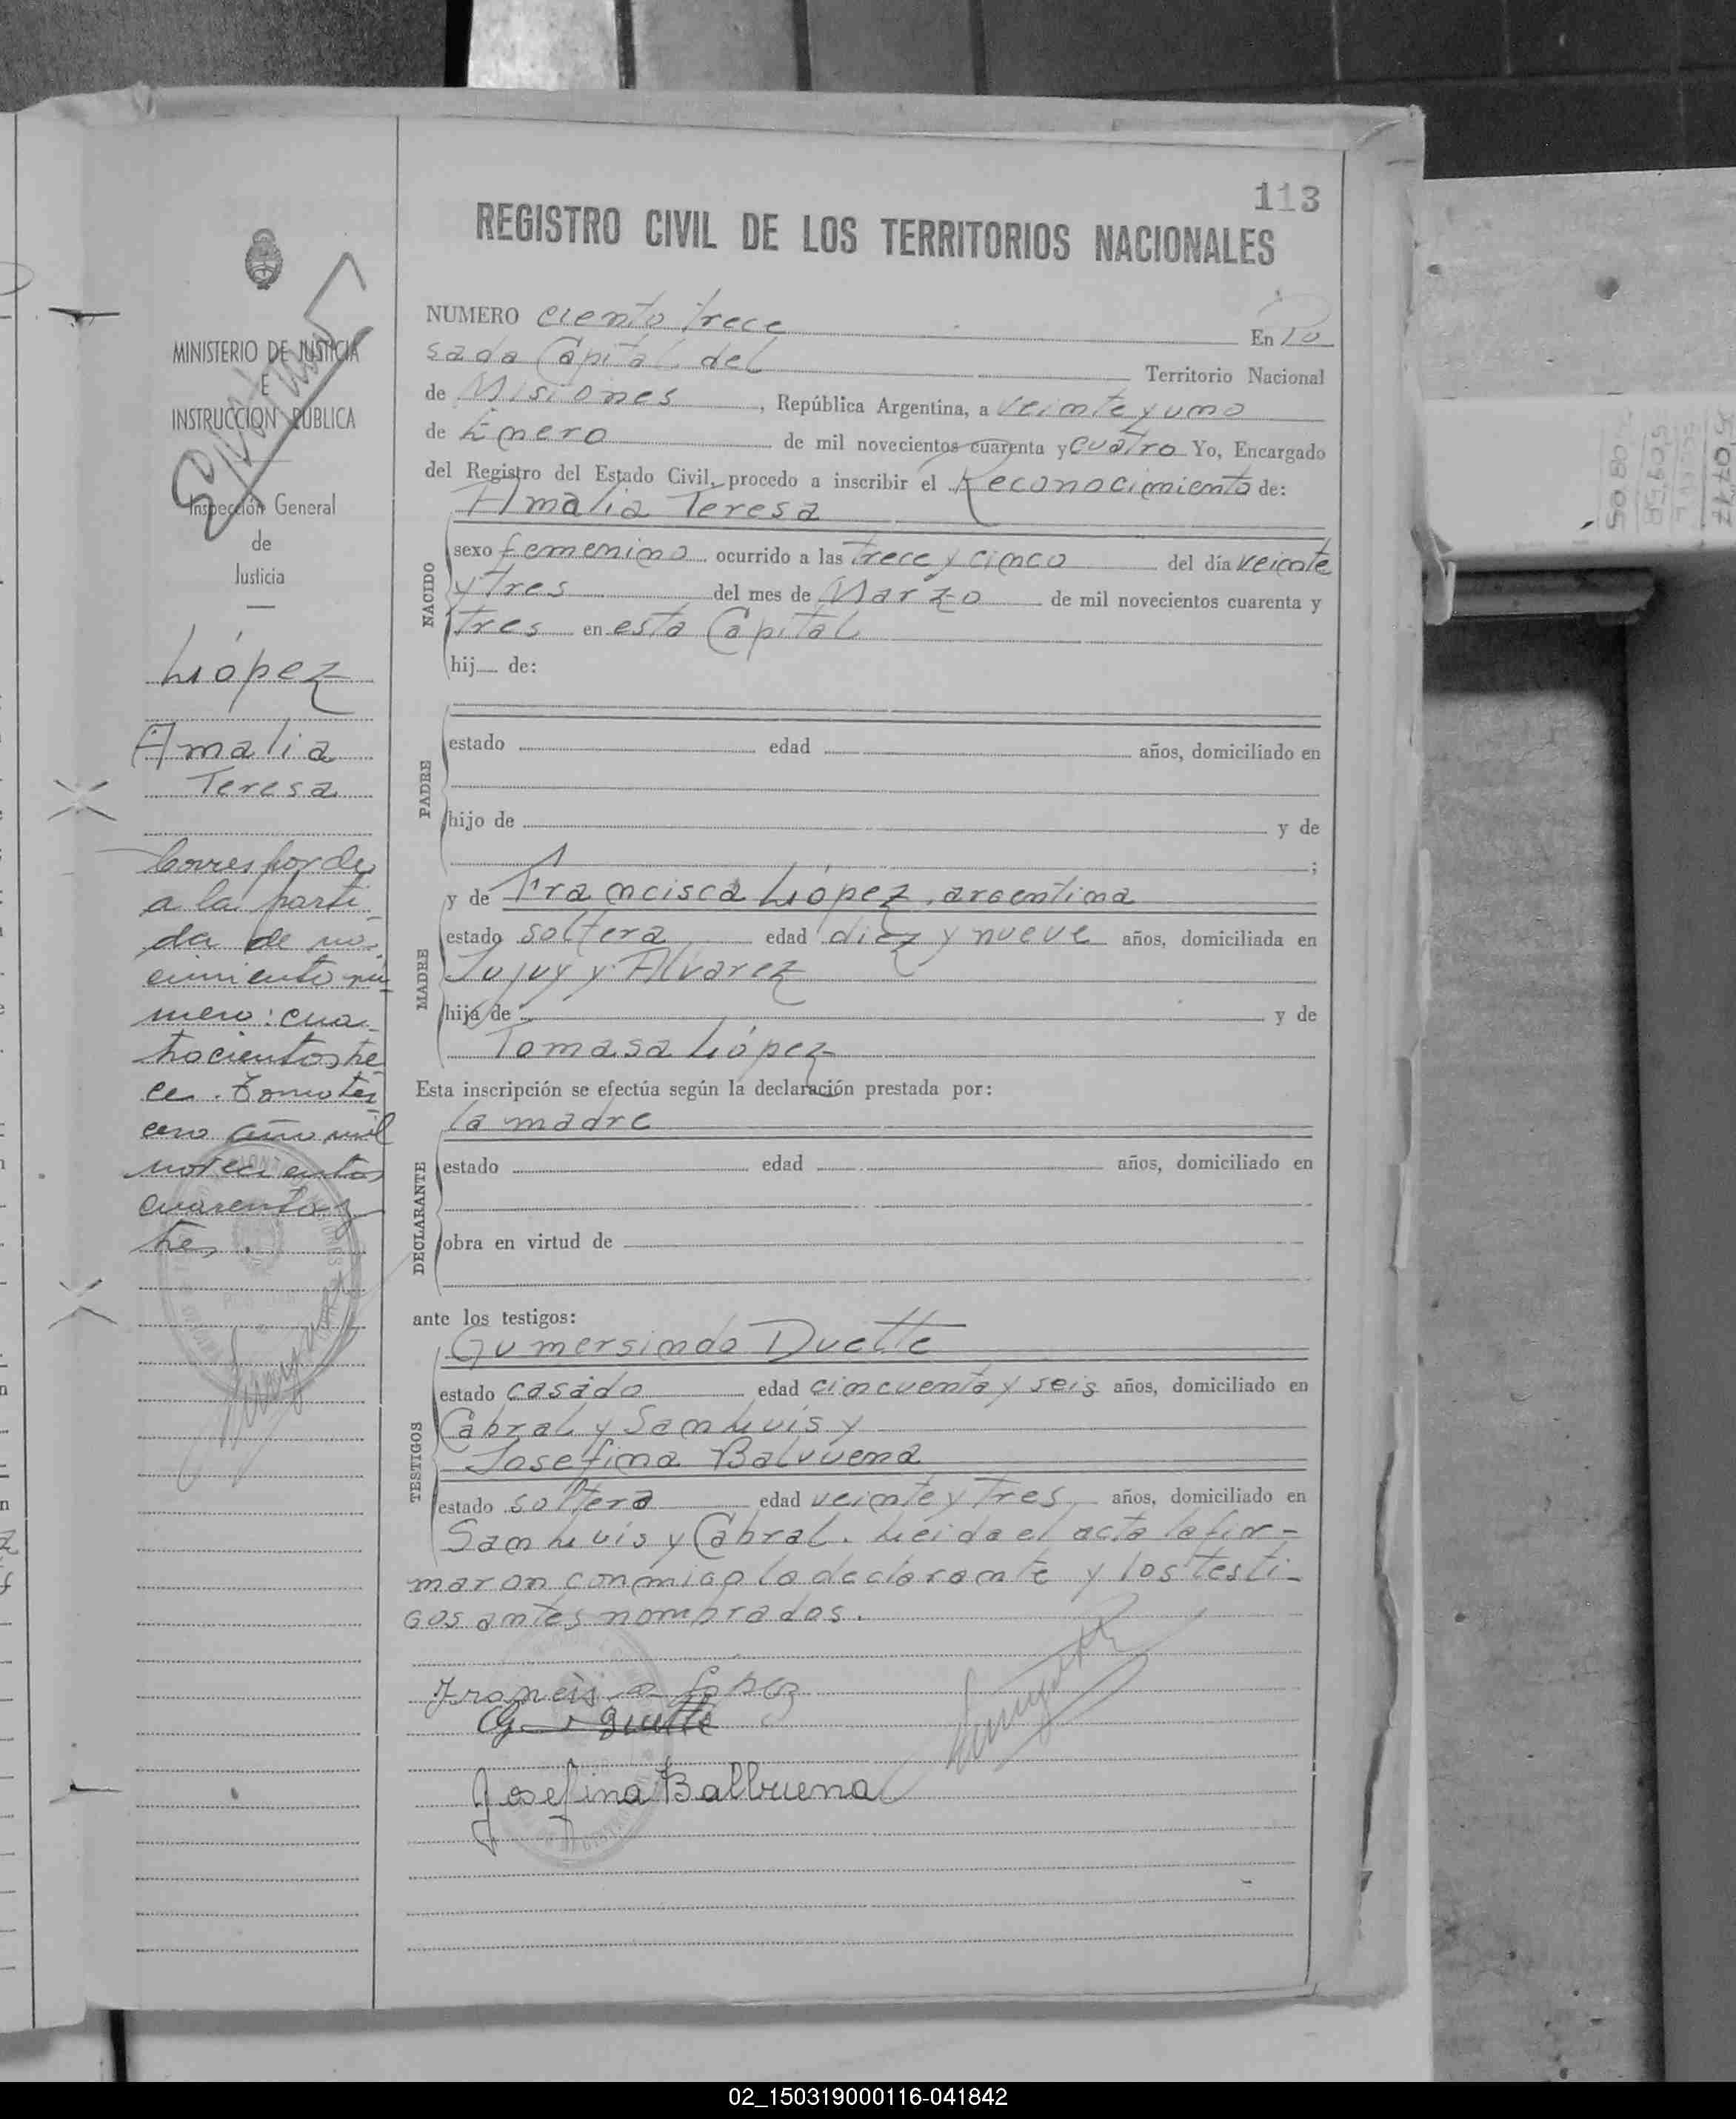 113
REGISTRO CIVIL DE LOS TERRITORIOS NACIONALES
MINISTERIO DE JUSTICIA
E
INSTRUCCION PUBLICA
Inspección General
de
Justicia
López
Amalia
Teresa
Corresponde
a la parti
da de na-
cimiento nú-
mero: cua-
trocientos tre
ce. Tomo ter
cero año mil
novecientos
cuarenta y
tres.
NUMERO ciento trece En Po
sada Capital del Territorio Nacional
de Misiones, República Argentina, a veinte y uno
de Enero de mil novecientos cuarenta y cuatro Yo, Encargado
del Registro del Estado Civil, procedo a inscribir el Reconocimiento de:
Amalia Teresa
NACIDO
sexo femenino ocurrido a las trece y cinco del día veinte
y tres del mes de Marzo de mil novecientos cuarenta y
tres en esta Capital
hij de:
PADRE
estado edad años, domiciliado en
hijo de y de
;
MADRE
y de Francisca López, argentina
estado soltera edad diez y nueve años, domiciliada en
Jujuy y Alvarez
hija de y de
Tomasa López
Esta inscripción se efectúa según la declaración prestada por:
la madre
DECLARANTE
estado edad años, domiciliado en
obra en virtud de
ante los testigos:
TESTIGOS
Gumersindo Duette
estado casado edad cincuenta y seis años, domiciliado en
Cabral y San Luis y
Josefina Balvuena
estado soltera edad veinte y tres años, domiciliado en
San Luis y Cabral. Leida el acta la fir-
maron conmigo la declarante y los testi-
gos antes nombrados.
Francisca Lopez
Josefina Balbuena
50805
50958
50717
02_150319000116-041842